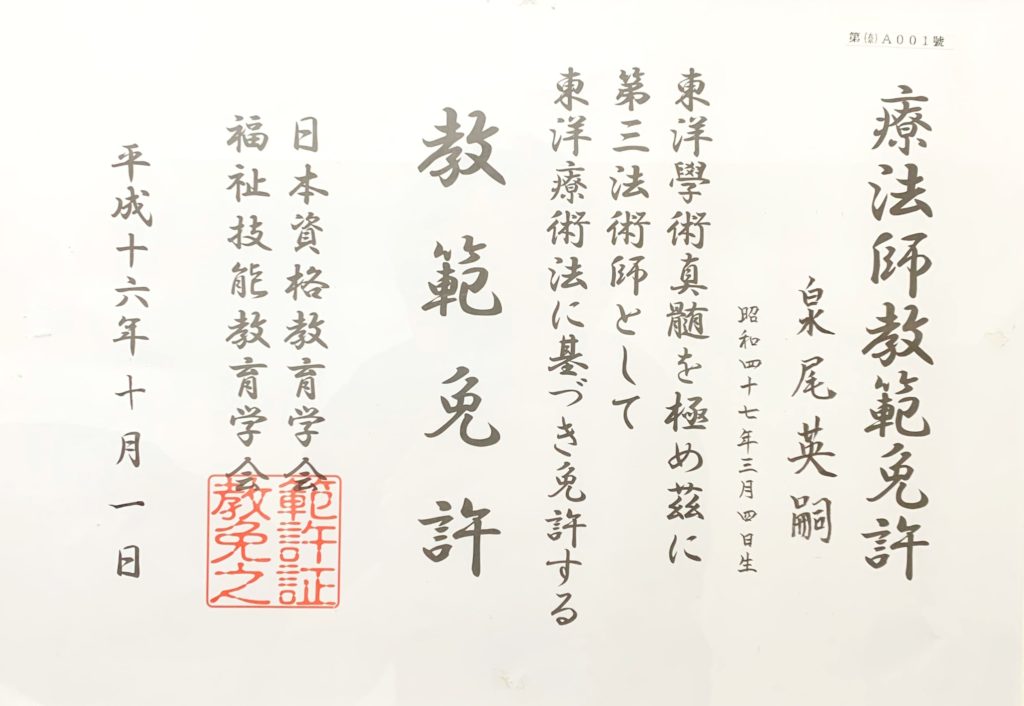 第A001號
療法師教範免許
泉尾英嗣
昭和四十七年三月四日生
東洋學術真髄を極め茲に
第三法術師として
東洋療術法に基づき免許する
教範免許
日本資格教育学会
福祉技能教育学会
教範
免許
之証
平成十六年十月一日